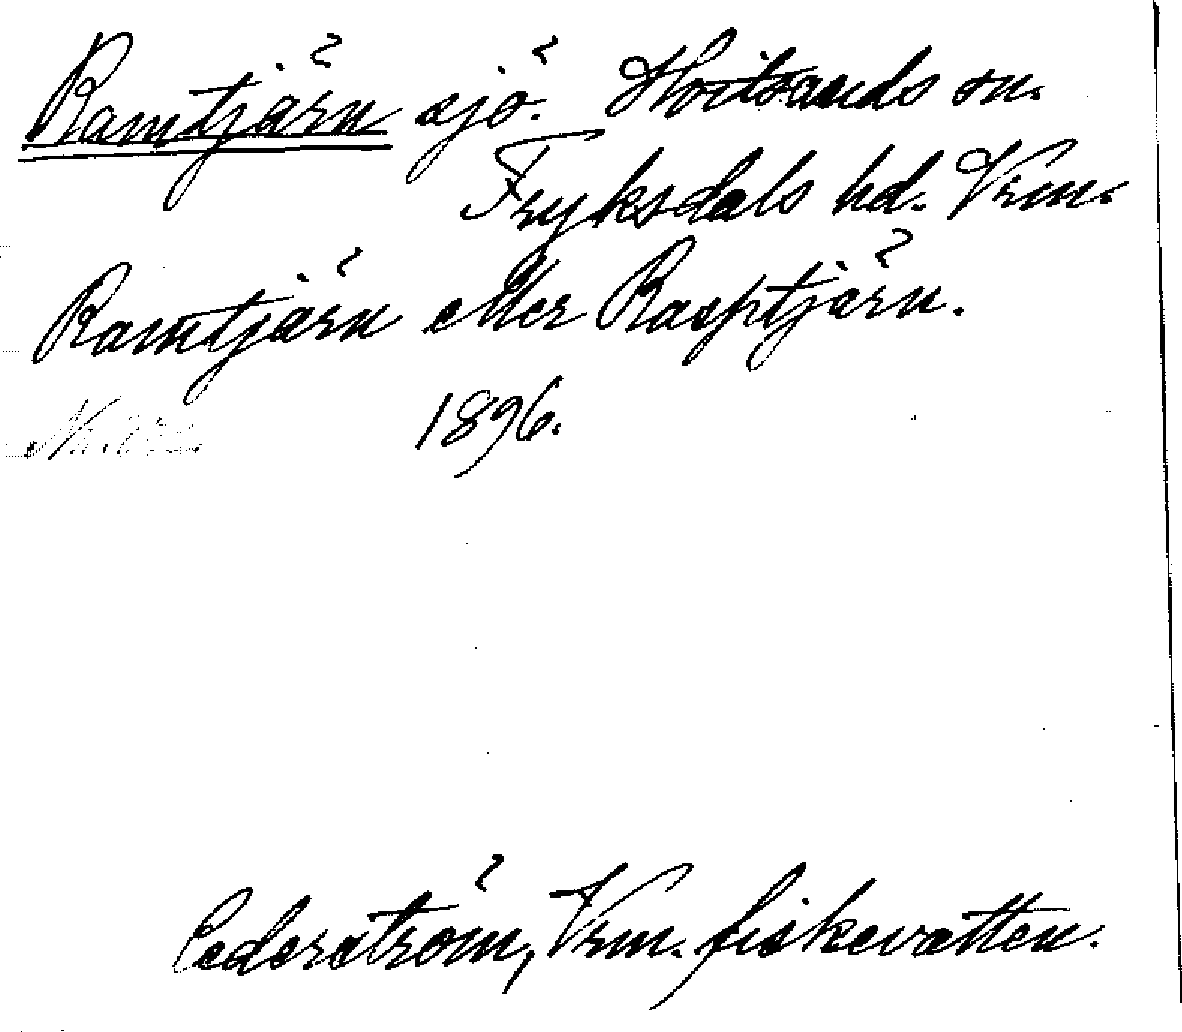 Ramtjärn sjö. Hvitsands sn.
Fryksdals hd. Vrm.
Ramtjärn eller Rasptjärn.
1896.
Cederström, Vrm. fiskevatten.